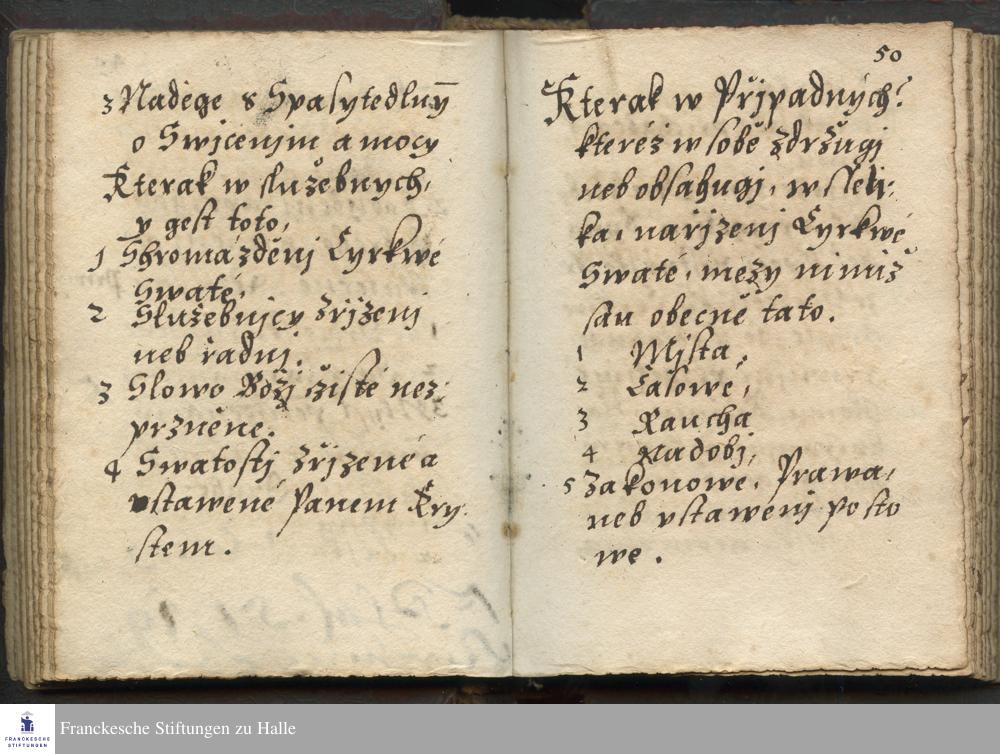 3 Naděge & Spasytedlnӯ
o Swjcenjm a mocy
Kterak w služebnych,
y gest toto,
1 Shromážděnj Cyrkwé
Swaté,
2 Služebnjcy zřjzenj
neb řadnj.
3 Slowo Božj čisté nez:
przněné.
4 Swatostj zřjzené a
vstawené Panem Kry:
stem.
50
Kterak w Přjpadných?
kteréž w sobě zdržugj
neb obsahugj, w sseli:
ka, nařjzenj Cyrkwé
Swaté, mezy nimiž
sau obecně tato.
1 Mjsta,
2 Časowé,
3 Raucha
4 Nadobj,
5 Zakonowe, Prawa,
neb vstawenj posto
we.
Franckesche Stiftungen zu Halle
FRANCKESCHE
STIFTUNGEN